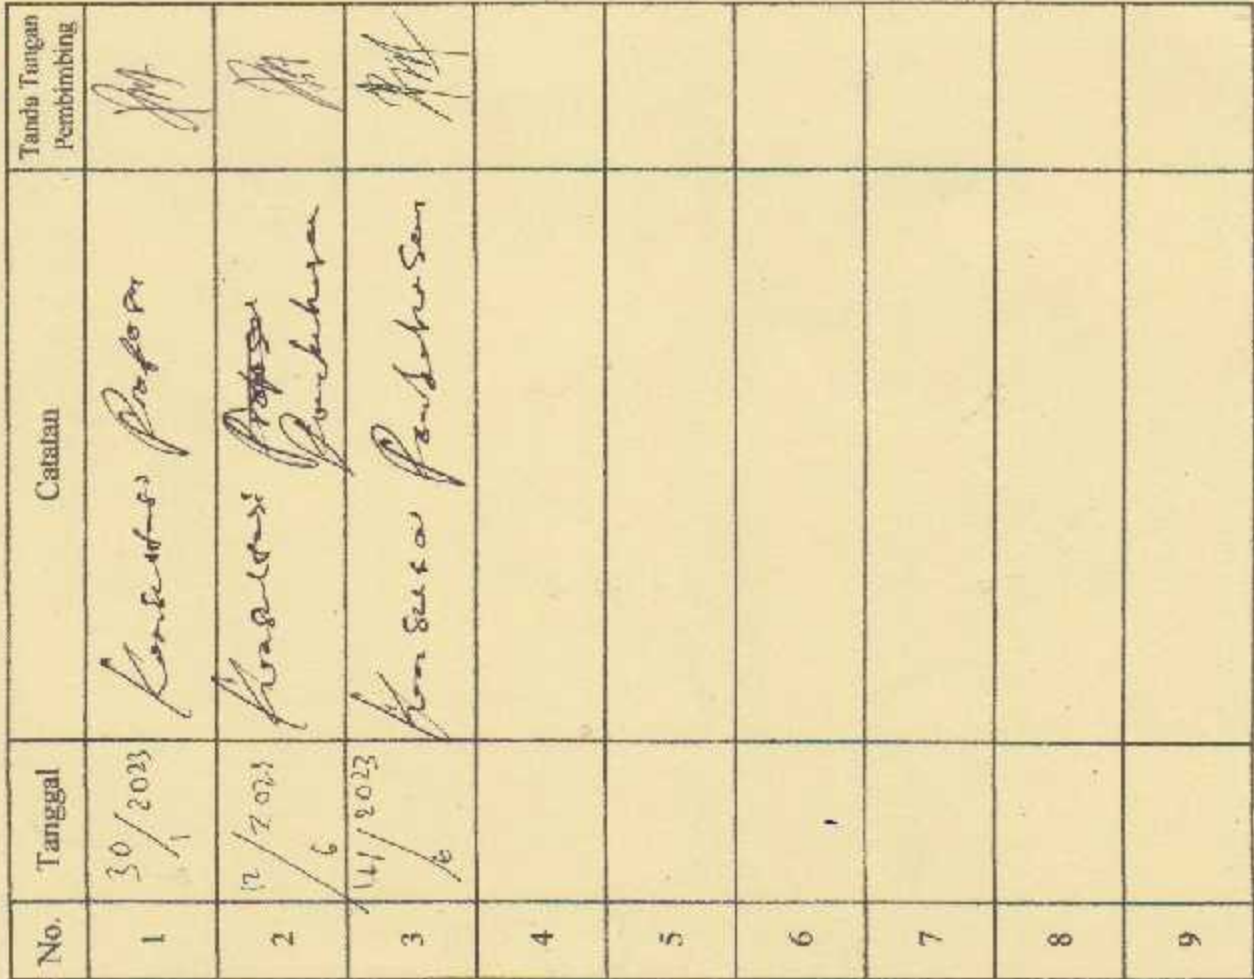 No. Tanggal Catatan Tanda Tangan Pembimbing
1 30/1 2023 Konsultasi Proposal
2 12/6 2023 Konsultasi Pembahasan
3 14/6 2023 Konsultasi Pembahasan
4
5
6
7
8
9